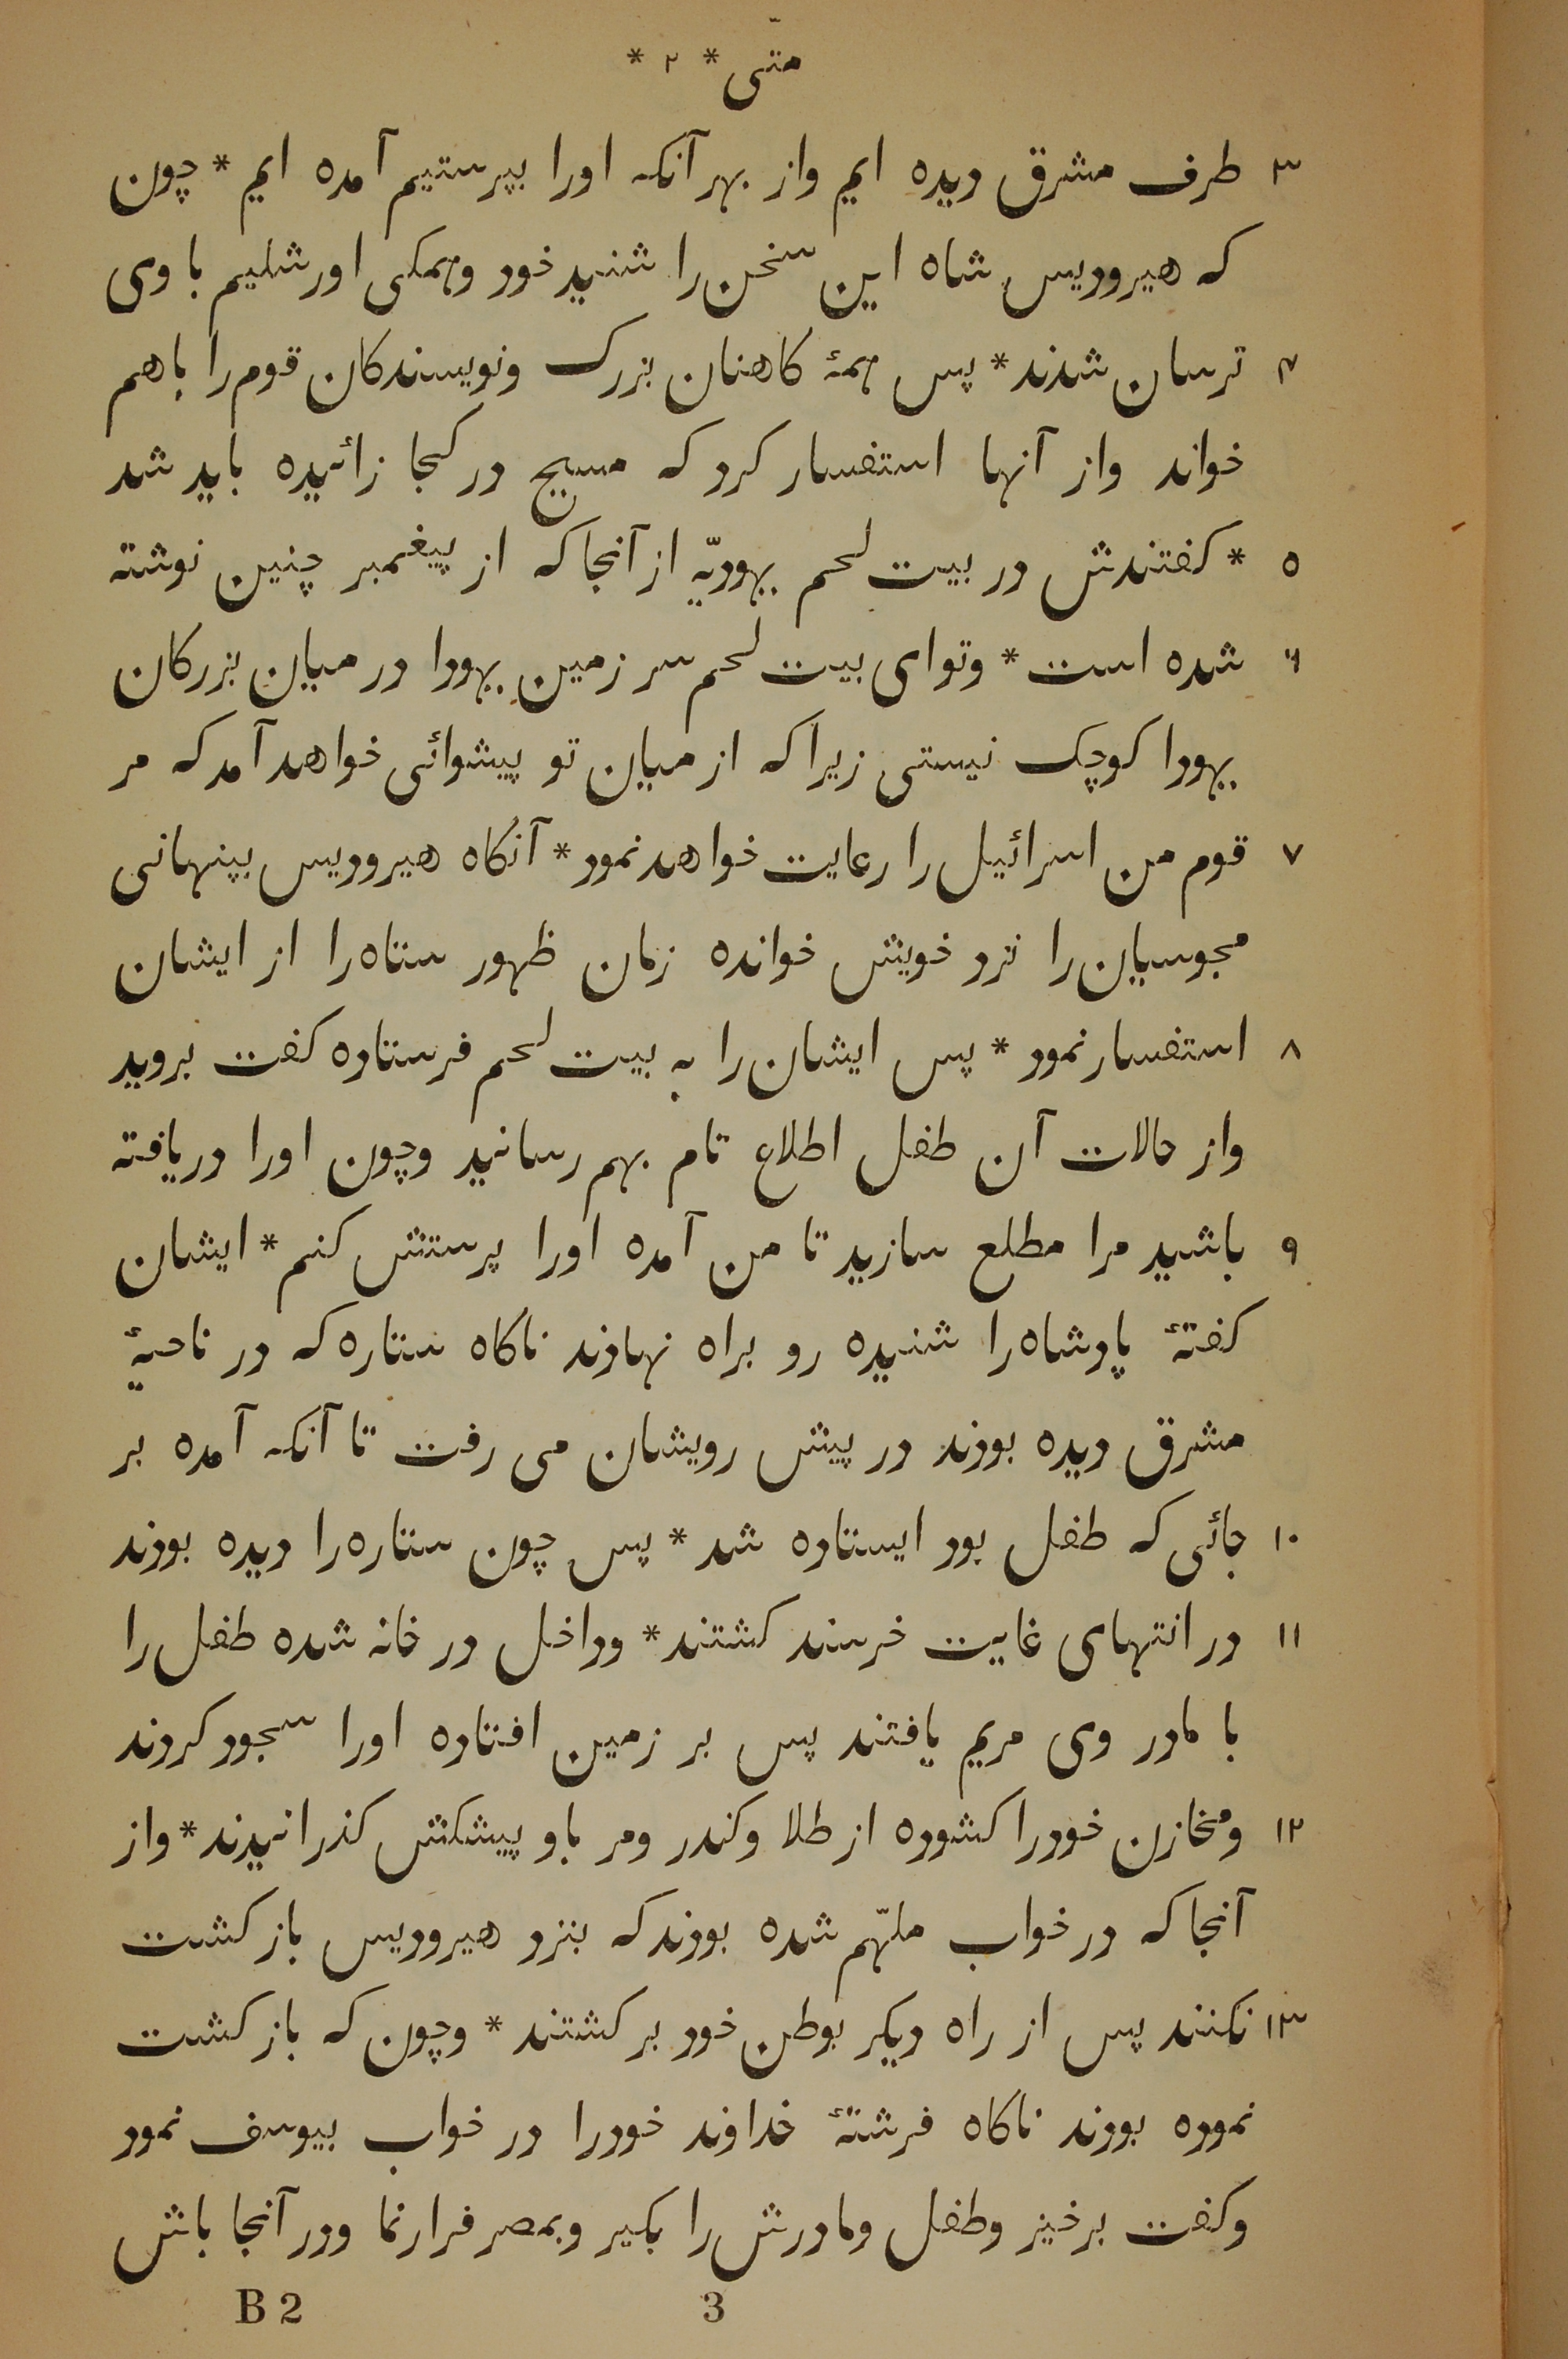 متّی * ۲ *
۳ طرف مشرق دیده ایم واز بهر آنکه اورا بپرستیم آمده ایم * چون
که هیرودیس شاه این سخن را شنید خود وهمکی اورشلیم با وی
۴ ترسان شدند * پس همهٔ کاهنان بزرک ونویسندکان قوم را باهم
خواند واز آنها استفسار کرد که مسیح در کجا زائیده باید شد
۵ * کفتندش در بیت لحم یهودیّه از آنجا که از پیغمبر چنین نوشته
۶ شده است * وتو ای بیت لحم سر زمین یهودا در میان بزرکان
یهودا کوچک نیستی زیرا که از میان تو پیشوائی خواهد آمد که مر
۷ قوم من اسرائیل را رعایت خواهد نمود * آنکاه هیرودیس بپنهانی
مجوسیان را نزد خویش خوانده زمان ظهور ستاه را از ایشان
۸ استفسار نمود * پس ایشان را به بیت لحم فرستاده کفت بروید
واز حالات آن طفل اطلاع تام بهم رسانید وچون اورا دریافته
۹ باشید مرا مطلع سازید تا من آمده اورا پرستش کنم * ایشان
کفتهٔ پادشاه را شنیده رو براه نهادند ناکاه ستاره که در ناحیهٔ
مشرق دیده بودند در پیش رویشان می رفت تا آنکه آمده بر
۱۰ جائی که طفل بود ایستاده شد * پس چون ستاره را دیده بودند
۱۱ در انتهای غایت خرسند کشتند * وداخل در خانه شده طفل را
با مادر وی مریم یافتند پس بر زمین افتاده اورا سجود کردند
۱۲ ومخازن خودرا کشوده از طلا وکندر ومر باو پیشکش کذرانیدند * واز
آنجا که در خواب ملهّم شده بودند که بنزد هیرودیس باز کشت
۱۳ نکنند پس از راه دیکر بوطن خود بر کشتند * وچون که باز کشت
نموده بودند ناکاه فرشتهٔ خداوند خودرا در خواب بیوسف نمود
وکفت برخیز وطفل ومادرش را بکیر وبمصر فرار نما ودر آنجا باش
3 B 2